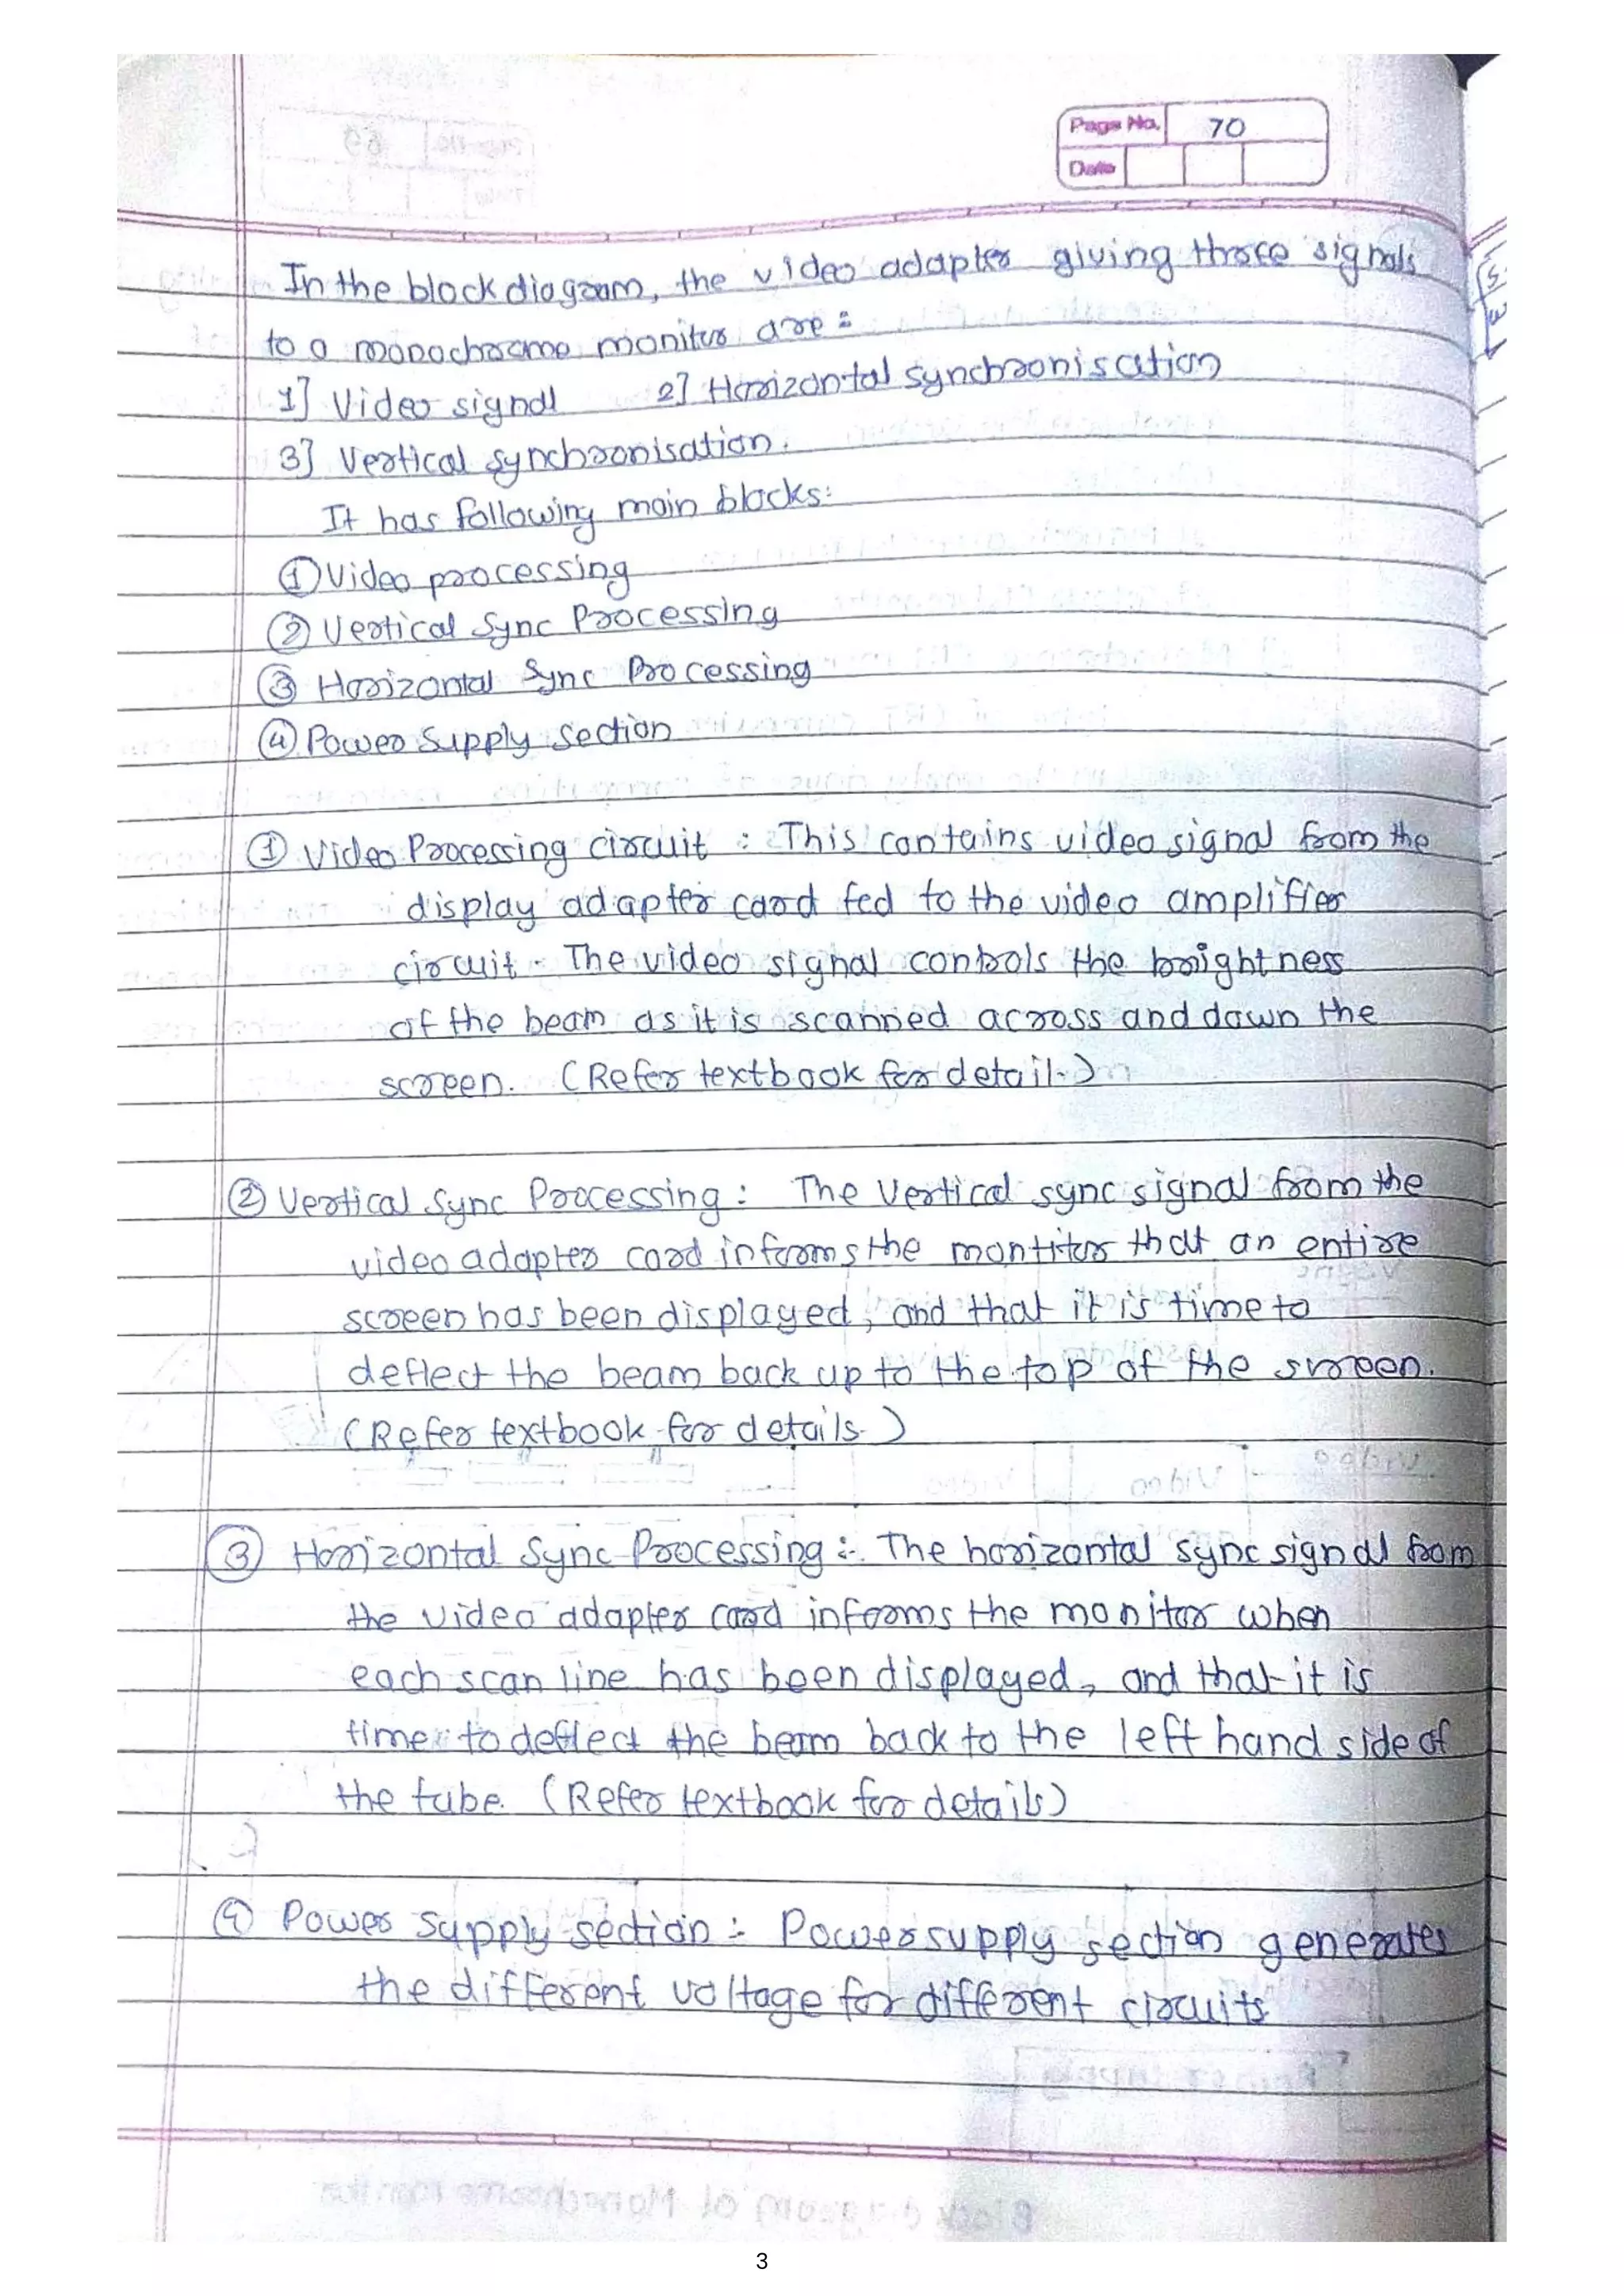 Page No. 70
Date
In the block diagram, the video adapter giving three signals
to a monochrome monitor are :
1] Video signal 2] Horizontal synchronisation
3] Vertical synchronisation.
It has following main blocks:
① Video processing
② Vertical Sync Processing
③ Horizontal Sync Processing
④ Power Supply Section
① Video Processing circuit : This contains video signal from the
display adapter card fed to the video amplifier
circuit. The video signal controls the brightness
of the beam as it is scanned across and down the
screen. (Refer textbook for detail.)
② Vertical Sync Processing : The Vertical sync signal from the
video adapter card informs the montitor that an entire
screen has been displayed, and that it is time to
deflect the beam back up to the top of the screen.
(Refer textbook for details.)
③ Horizontal Sync Processing :- The horizontal sync signal from
the video adapter card informs the monitor when
each scan line has been displayed, and that it is
time to deflect the beam back to the left hand side of
the tube. (Refer textbook for details)
④ Power Supply section :- Power supply section generates
the different voltage for different circuits.
3